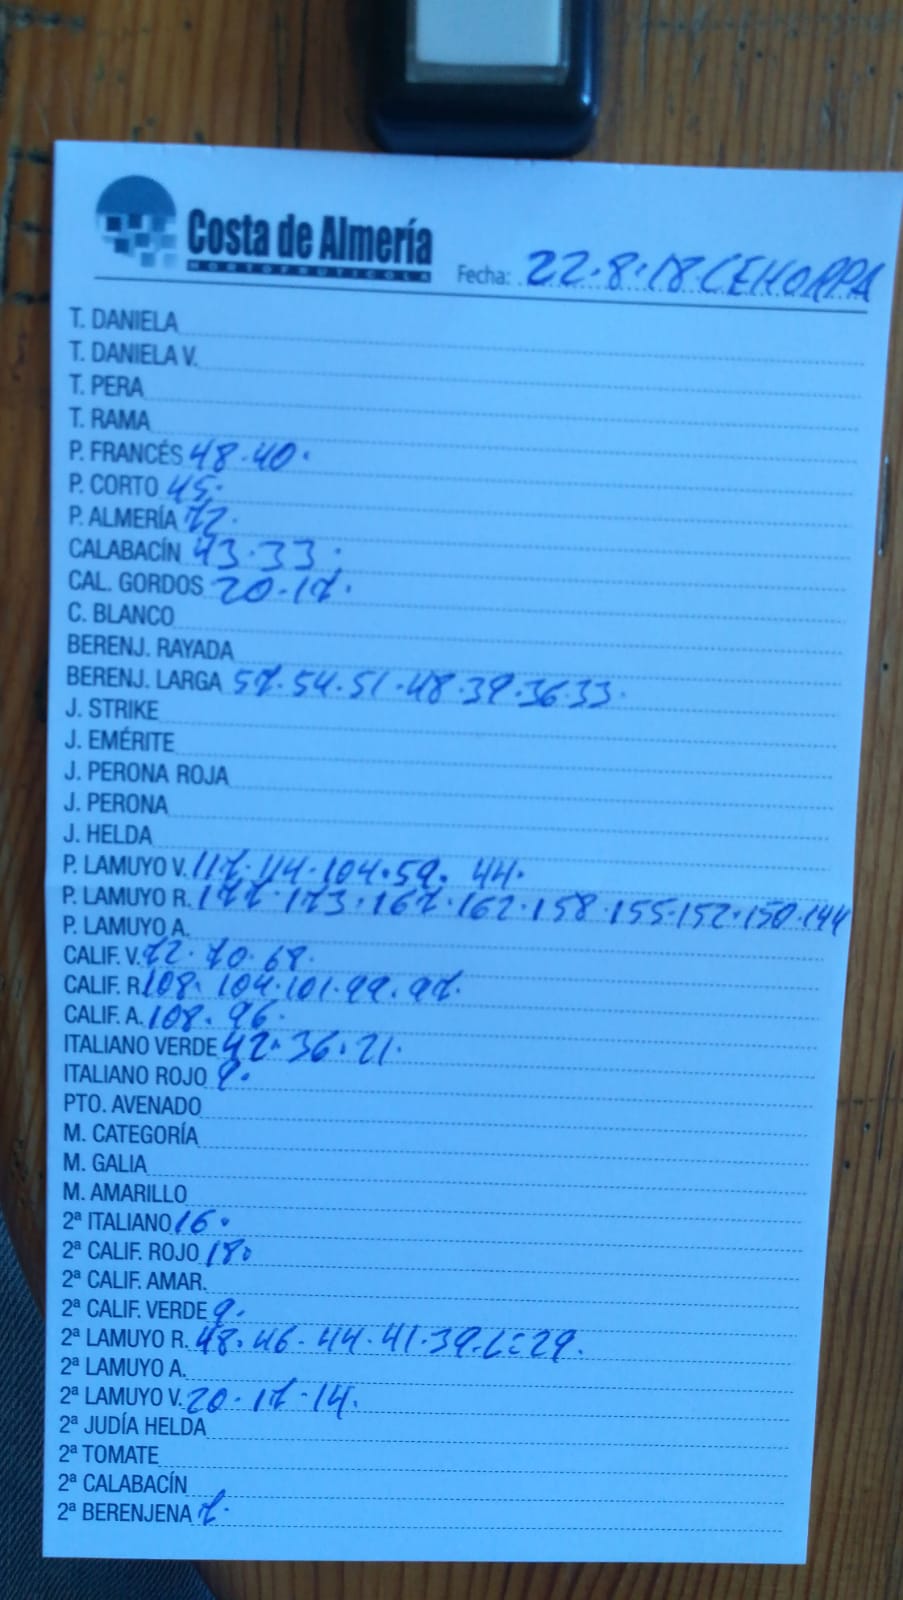 Costa de Almería
HORTOFRUTICOLA
Fecha: 22.8.18 CEHORPA
T. DANIELA
T. DANIELA V.
T. PERA
T. RAMA
P. FRANCÉS 48.40.
P. CORTO 45.
P. ALMERÍA 72.
CALABACÍN 43.33.
CAL. GORDOS 20.17.
C. BLANCO
BERENJ. RAYADA
BERENJ. LARGA 57.54.51.48.39.36.33.
J. STRIKE
J. EMÉRITE
J. PERONA ROJA
J. PERONA
J. HELDA
P. LAMUYO V. 117.114.104.59. 44.
P. LAMUYO R. 177.173.167.162.158.155.152.150.144
P. LAMUYO A.
CALIF. V. 72.70.68.
CALIF. R. 108.104.101.99.97.
CALIF. A. 108.96.
ITALIANO VERDE 42.36.21.
ITALIANO ROJO 9.
PTO. AVENADO
M. CATEGORÍA
M. GALIA
M. AMARILLO
2ª ITALIANO 16.
2ª CALIF. ROJO 18.
2ª CALIF. AMAR.
2ª CALIF. VERDE 9.
2ª LAMUYO R. 48.46.44.41.39.29.
2ª LAMUYO A.
2ª LAMUYO V. 20.17.14.
2ª JUDÍA HELDA
2ª TOMATE
2ª CALABACÍN
2ª BERENJENA 7.